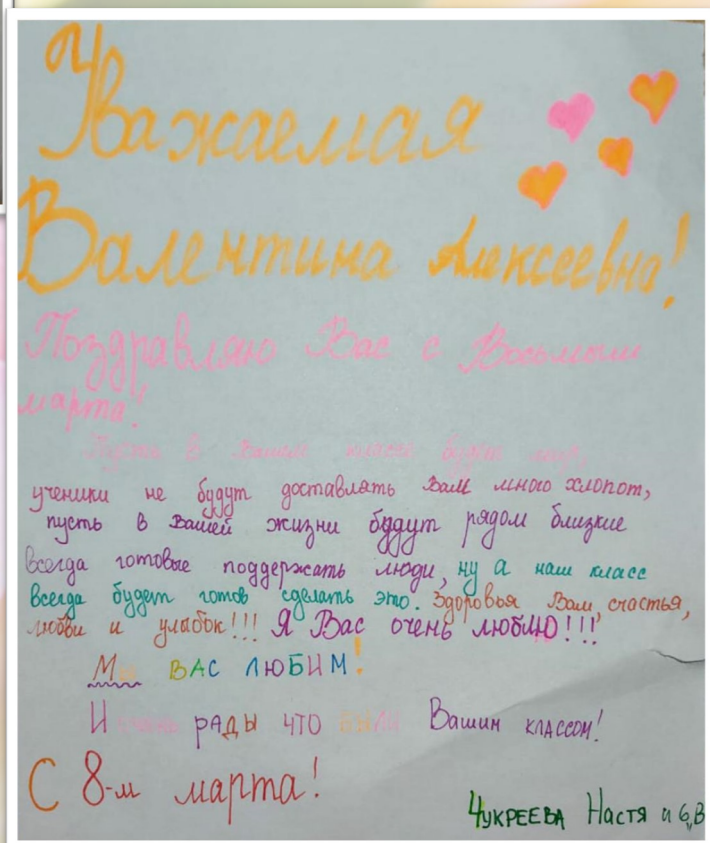 Уважаемая
Валентина Алексеевна!
Поздравляю Вас с Восьмым
марта!
Пусть в Вашем классе будет мир,
ученики не будут доставлять Вам много хлопот,
пусть в Вашей жизни будут рядом близкие
всегда готовые поддержать люди, ну а наш класс
всегда будет готов сделать это. Здоровья Вам, счастья,
любви и улыбок!!! Я Вас очень люблю!!!
Мы ВАС ЛЮБИМ!
И очень рады что были Вашим классом!
С 8-м марта!
Чукреева Настя и 6„В